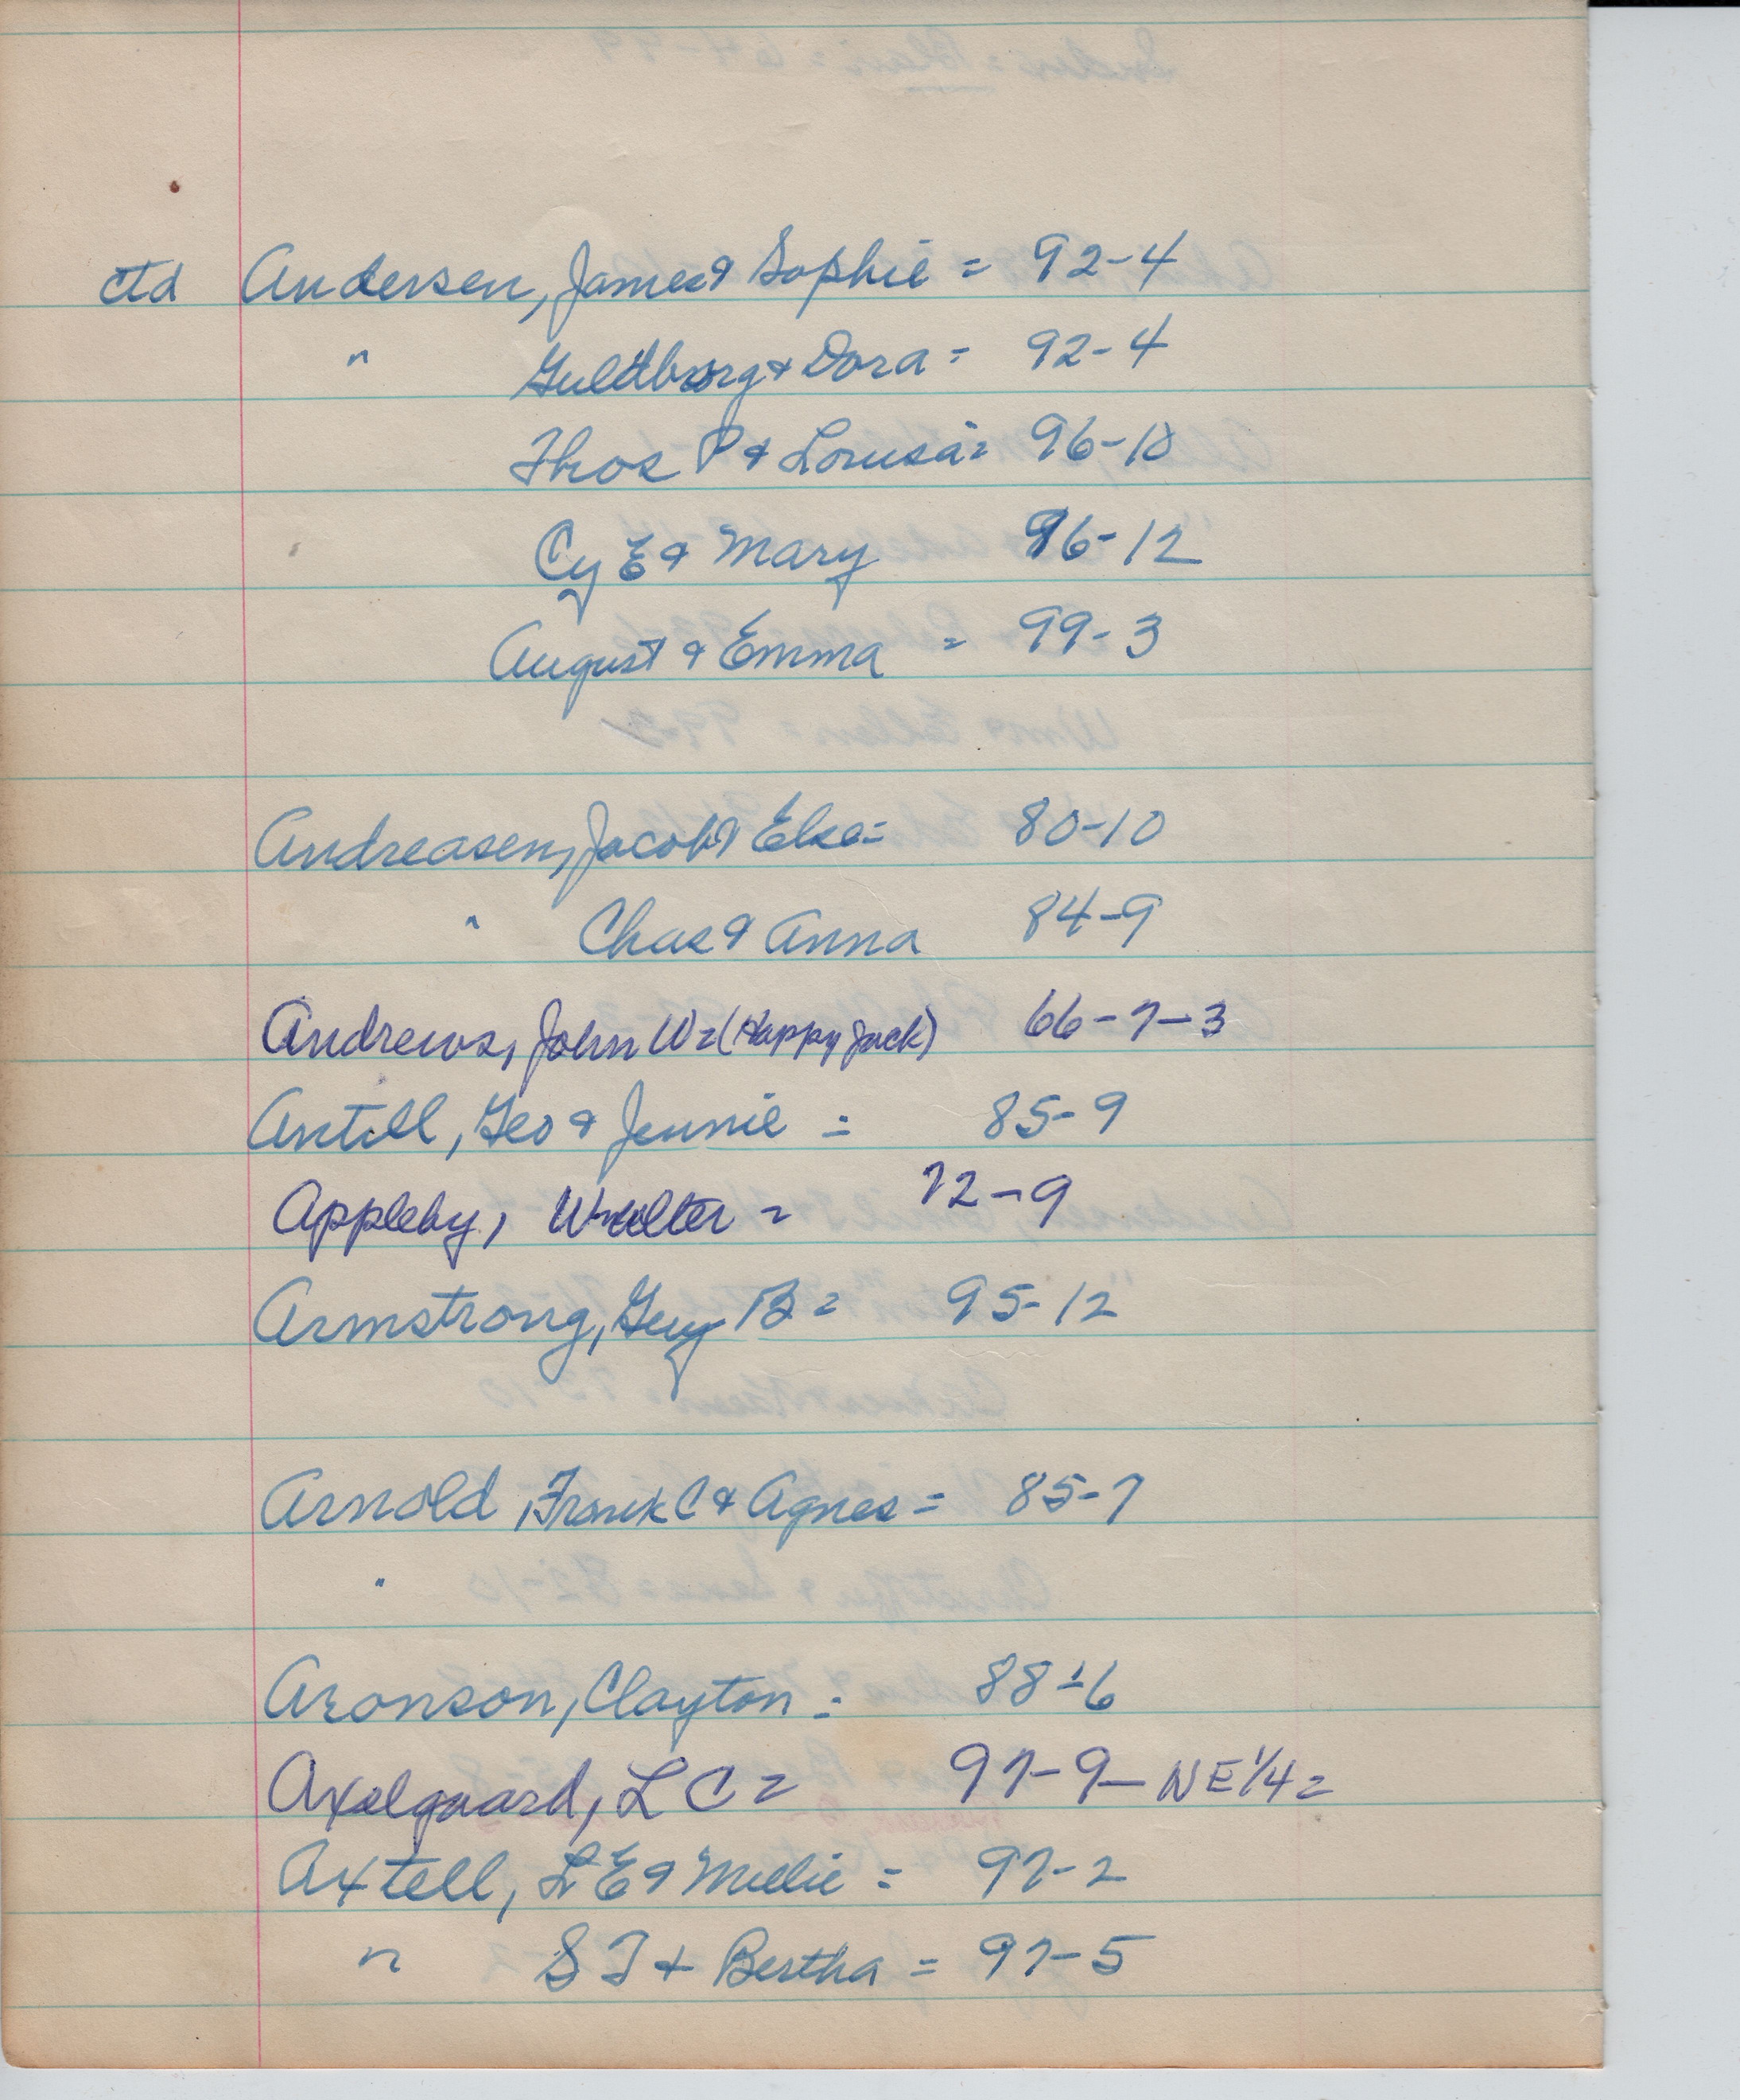 ctd Andersen, James & Sophie = 92-4
" Guldborg & Dora = 92-4
Thos P & Louisa = 96-10
Cy E & Mary 96-12
August & Emma = 99-3
Andreasen, Jacob & Else = 80-10
" Chas & Anna 84-9
Andrews, John W = (Happy Jack) 66-7-3
Antill, Geo & Jennie = 85-9
Appleby, Walter = 72-9
Armstrong, Guy B = 95-12
Arnold, Frank C & Agnes = 85-7
"
Aronson, Clayton = 88-6
Axelgaard, L C = 97-9- NE 1/4 =
Axtell, L E & Mellie = 97-2
" S T & Bertha = 97-5